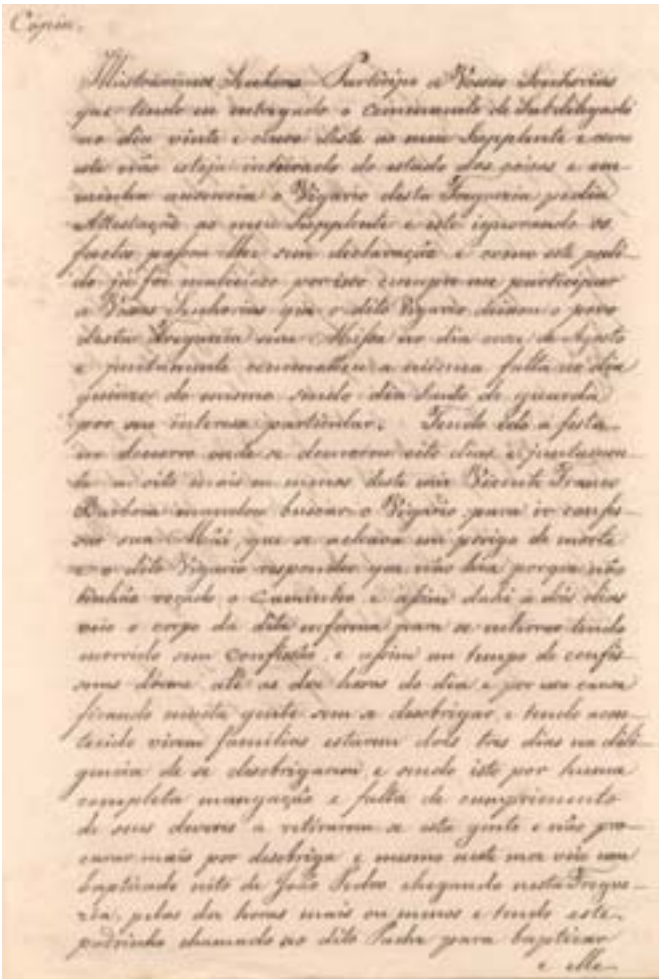 Cópia.
Illustrissimos Senhores Participo a Vossas Senhorias
que tendo eu entregado o Commando de Subdelegado
no dia vinte e deste ao meu Supplente e como
este não esteja inteirado do estado das coisas e em
minha ausencia o Vigario desta Freguezia pedio
Attestação ao meu Supplente e este ignorando os
factos passou lhe sem declaração e como este pedi-
do já foi malicioso por isso cumpre me participar
a Vossas Senhorias que o dito Vigario deixou o povo
desta Freguezia sem Missa no dia de Agosto
e juntamente commetteu a mesma falta no dia
quinze do mesmo sendo dia Santo de guarda
por seu interesse particular. Tendo ido a festa
no onde se demorou oito dias e juntamen-
te a oito mais ou menos deste mez Vicente Franco
Barbosa mandou buscar o Vigario para ir confes-
sar sua Mãi, que se achava em perigo de morte
e o dito Vigario respondeu que não hia porque não
tinhão roçado o Caminho e assim dahi a dôs dias
veio o corpo da dita enferma para se enterrar tendo
morrido sem Confissão, e assim em tempo de confis-
sões dorme até as dez horas do dia e por essa causa
ficando muita gente sem se desobrigar, e tendo acon-
tecido virem familias estarem dois tres dias na deli-
gencia de se desobrigarem e sendo isto por huma
completa mangação e falta de cumprimento
de seus deveres a retirarem se esta gente e não pro-
curar mais por desobriga e mesmo neste mez veio um
baptizado neto de João Pedro chegando nesta Fregue-
zia, pelas dez horas mais ou menos e tendo este
padrinho chamado ao dito Padre para baptizar
e elle